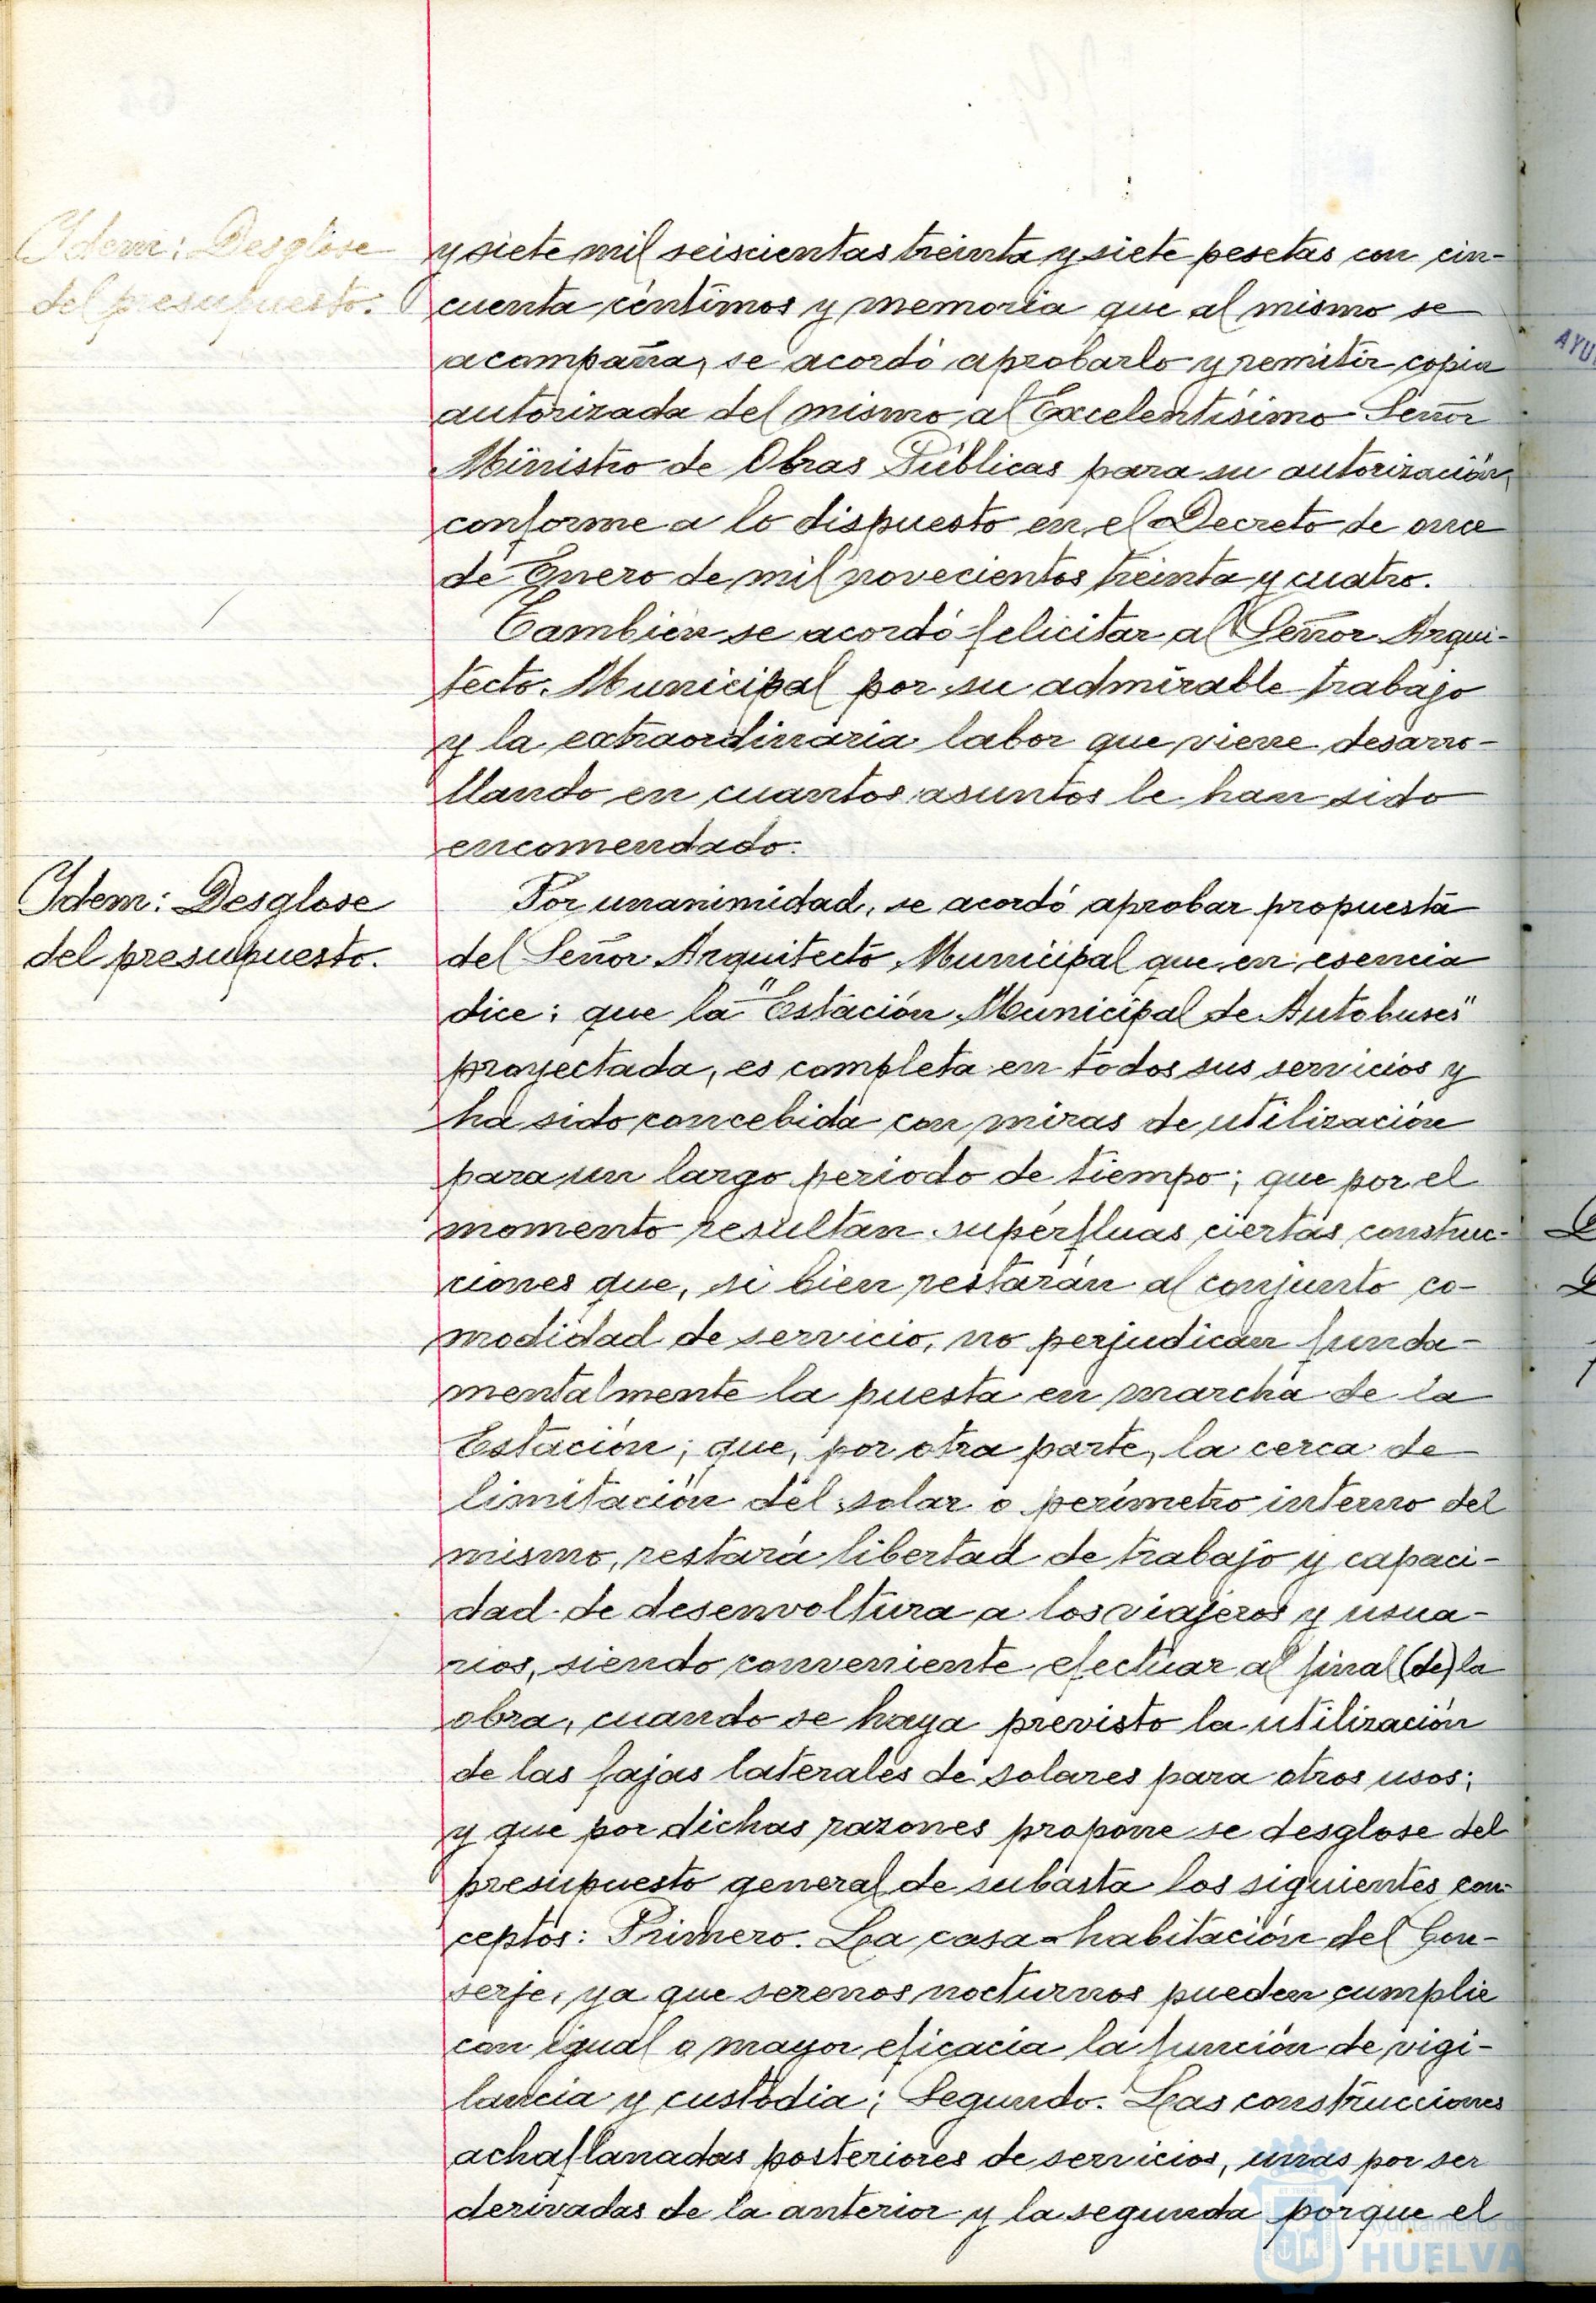 Idem: Desglose
del presupuesto.
y siete mil seiscientas treinta y siete pesetas con cin-
cuenta céntimos y memoria que al mismo se
acompaña, se acordó aprobarlo y remitir copia
autorizada del mismo al Excelentísimo Señor
Ministro de Obras Públicas para su autorización,
conforme a lo dispuesto en el Decreto de once
de Enero de mil novecientos treinta y cuatro.
También se acordó felicitar al Señor Arqui-
tecto Municipal por su admirable trabajo
y la extraordinaria labor que viene desarro-
llando en cuantos asuntos le han sido
encomendado.
Idem: Desglose
del presupuesto.
Por unanimidad, se acordó aprobar propuesta
del Señor Arquitecto Municipal que en esencia
dice: que la "Estación Municipal de Autobuses"
proyectada, es completa en todos sus servicios y
ha sido concebida con miras de utilización
para un largo periodo de tiempo; que por el
momento resultan superfluas ciertas construc-
ciones que, si bien restarán al conjunto co-
modidad de servicio, no perjudican funda-
mentalmente la puesta en marcha de la
Estación; que, por otra parte, la cerca de
limitación del solar o perímetro interno del
mismo, restará libertad de trabajo y capaci-
dad de desenvoltura a los viajeros y usua-
rios, siendo conveniente efectuar al final (de) la
obra, cuando se haya previsto la utilización
de las fajas laterales de solares para otros usos;
y que por dichas razones propone se desglose del
presupuesto general de subasta los siguientes con-
ceptos: Primero. La casa-habitación del Con-
serje, ya que serenos nocturnos pueden cumplir
con igual o mayor eficacia la función de vigi-
lancia y custodia; Segundo. Las construcciones
achaflanadas posteriores de servicios, unas por ser
derivadas de la anterior y la segunda porque el
AYU
Ayuntamiento de
HUELVA